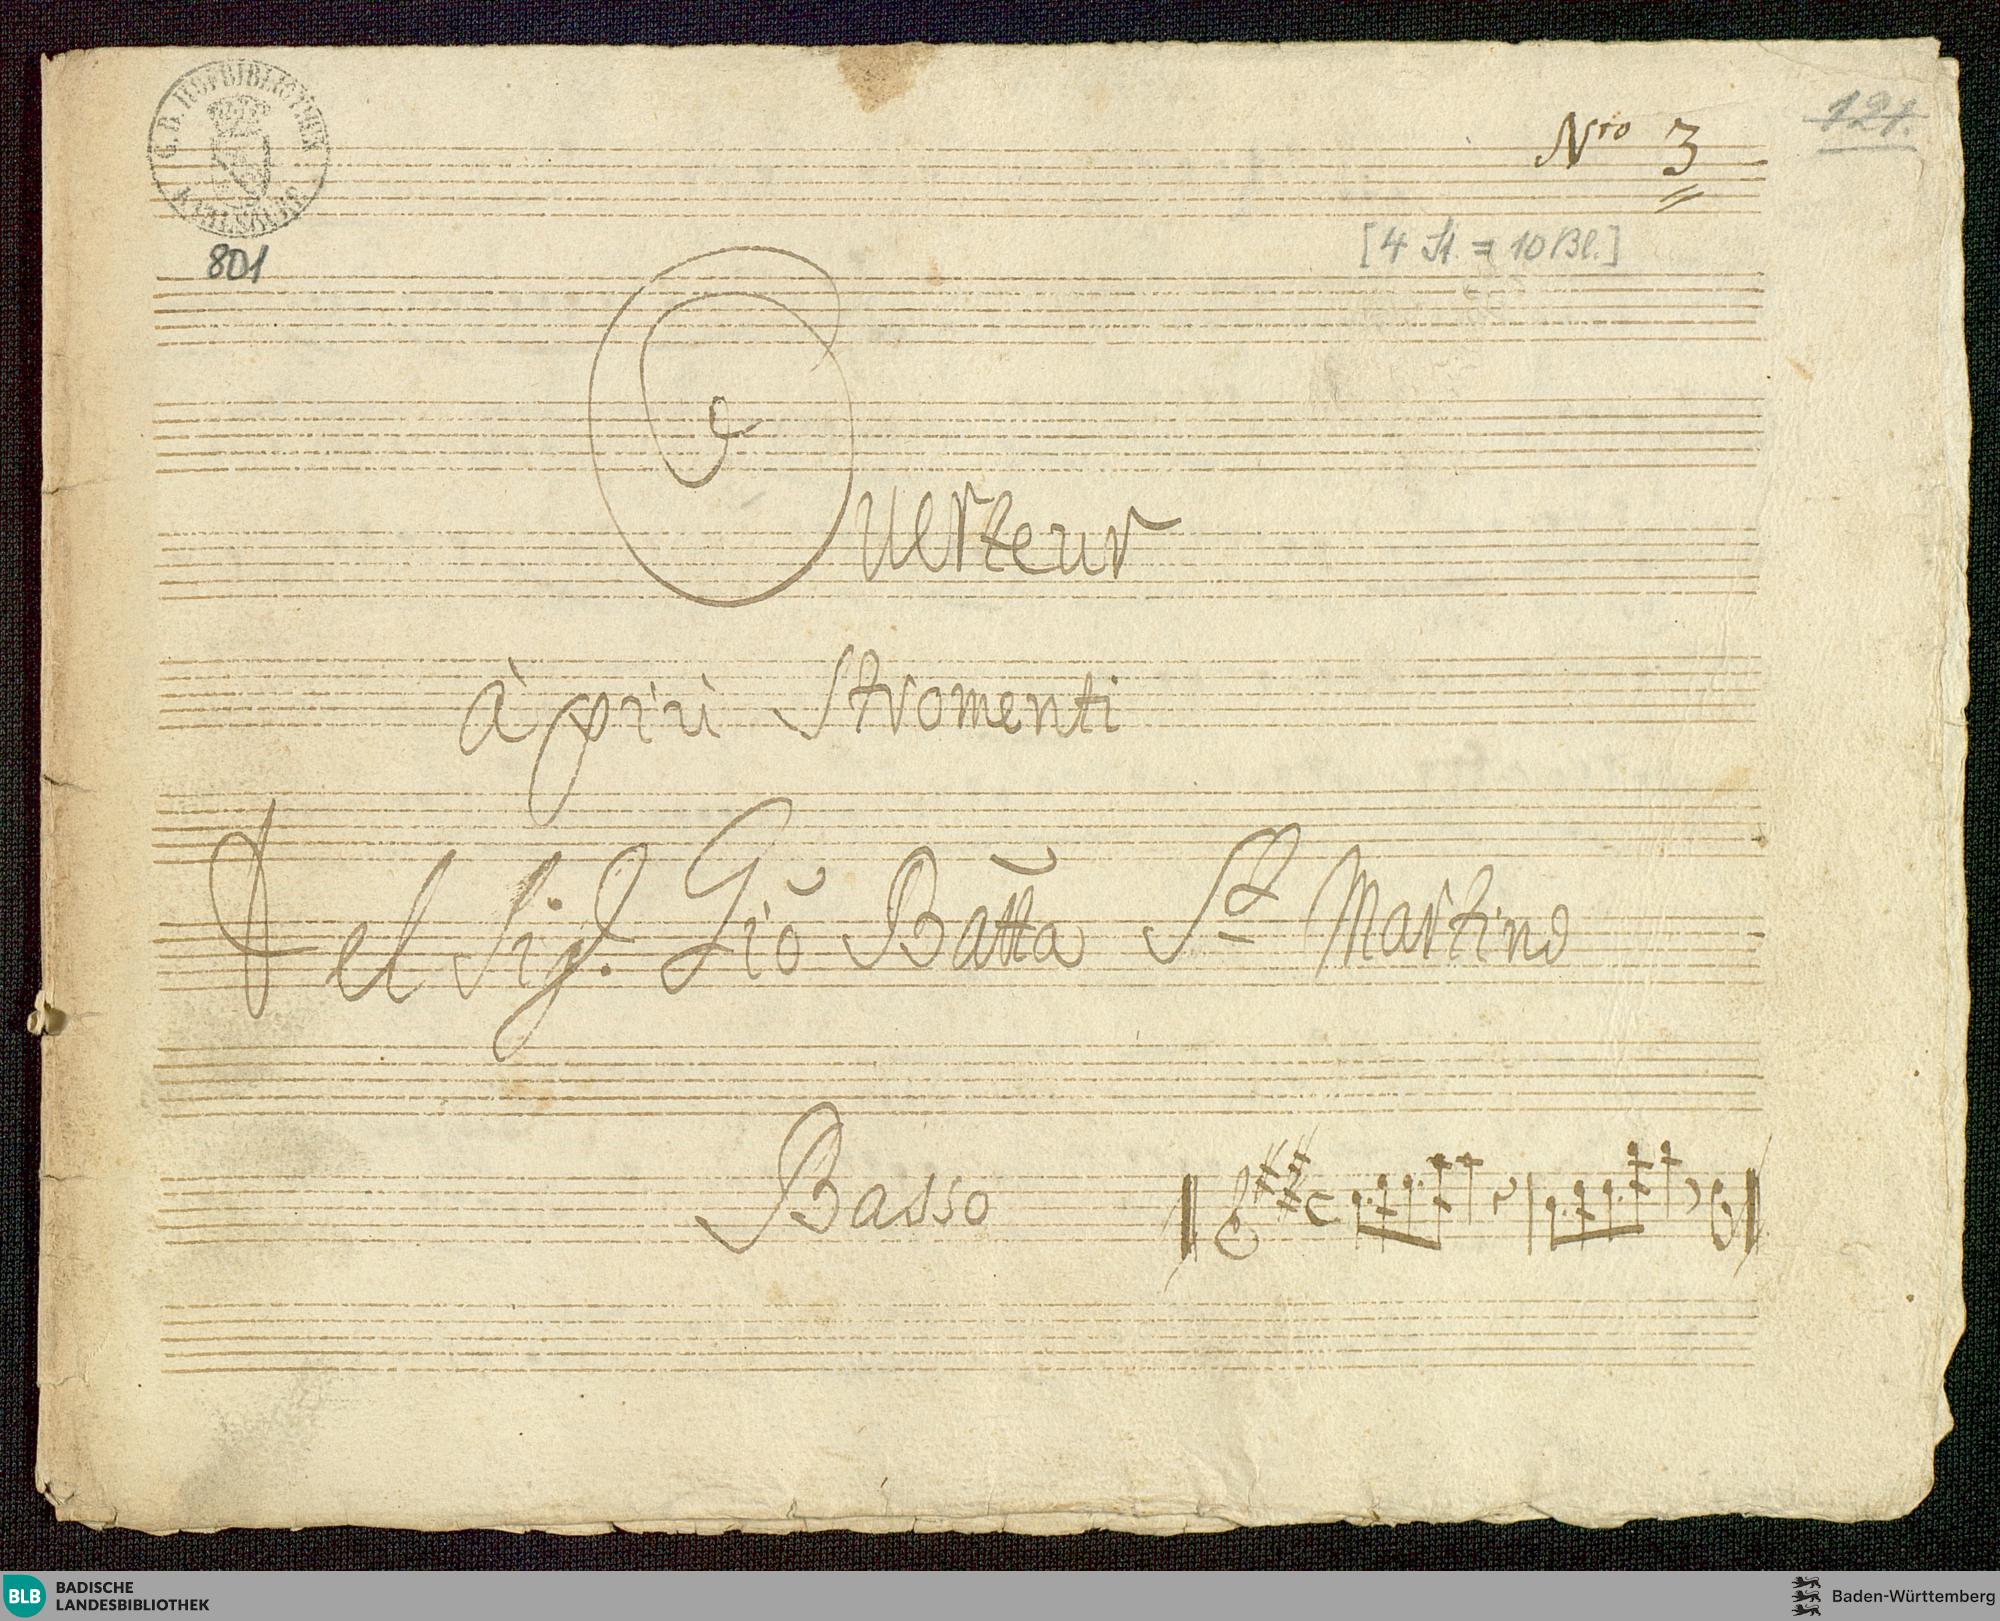 G. B. HOFBIBLIOTHEK
KARLSRUHE
801
Nro 3
121.
[4 St. = 10 Bl.]
Ouerteur
à più Stromenti
Del Sigl. Gio Batta St Martino
Basso
BLB BADISCHE
LANDESBIBLIOTHEK
Baden-Württemberg